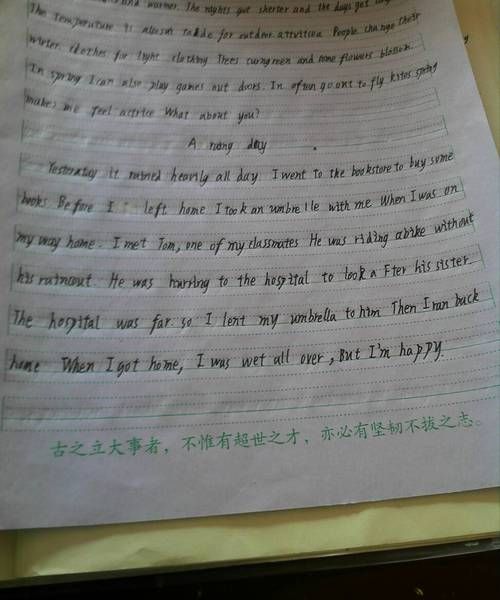 and warmer. The nights get shorter and the days get
The temperature is also suitable for outdoor activities People change their
winter clothes for light clothing Trees turn green and some flowers blossom.
In spring I can also play games out doors. In often go out to fly kites spring
makes me feel active What about you?
A rainy day
Yesterday it rained heavily all day I went to the bookstore to buy some
books Before I left home I took an umbrella with me When I was on
my way home. I met Tom, one of my classmates He was riding a bike without
his raincout. He was hurring to the hospital to look a Fter his sister.
The hospital was far. so I lent my umbrella to him Then I ran back
home When I got home, I was wet all over, But I'm happy.
古之立大事者，不惟有超世之才，亦必有坚韧不拔之志。